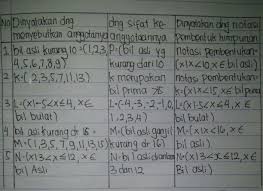 No Dinyatakan dng menyebutkan anggotanya
dng sifat ke-anggotaannya
Dinyatakan dng notasi pembentuk himpunan
1 bil asli kurang 10 = (1,2,3,
4,5,6,7,8,9)
P = (bil asli yg
kurang dari 10
notasi pembentukan =
(x|x<10, x € bil asli)
2 K = (2,3,5,7,11,13)
K merupakan
bil prima
notasi pembentukan =
K = (x|x<15, x € bil prima
3 L = (x|-5<x≤4, x €
bil bulat)
L = (-4,-3,-2,-1,0,
1,2,3,4)
L = (x|-5<x≤4, x €
bil bulat)
4 bil asli kurang dr 16 =
M = (1,3,5,7,9,11,13,15)
M = (bil asli ganjil
kurang dr 16)
M = (x|x<16, x €
bil asli)
5 N = (x|3<x≤12, x €
bil asli)
N = bil asli diantara
3 dan 12
N = (x|3<x≤12, x €
Bil. Asli)